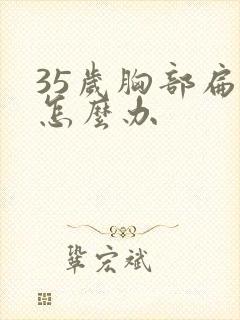 35歲胸部扁
怎麼办
鞏宏斌